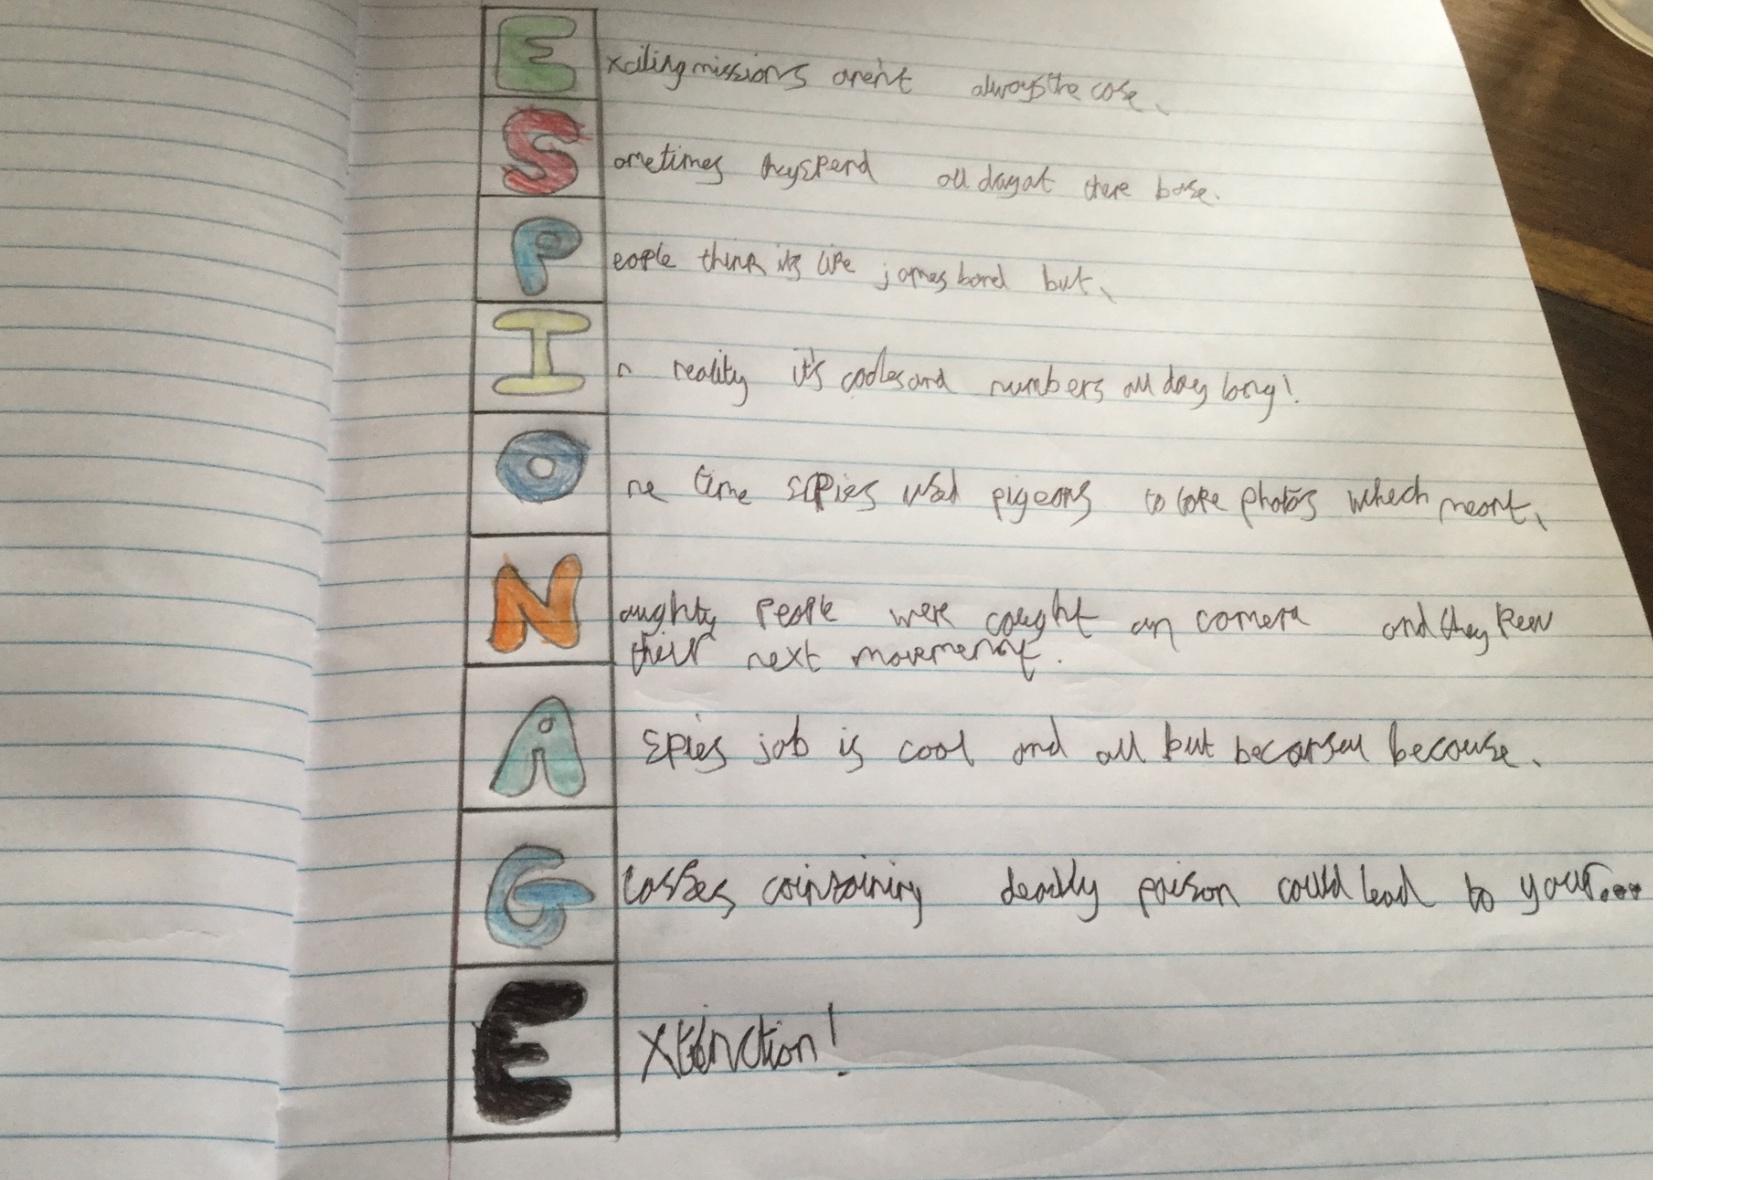 Exciting missions aren't always the case,
Sometimes they spend all day at there base.
People think it's like james bond but,
In reality it's codes and numbers all day long!
One time spies used pigeons to take photos which meant,
Naughty people were caught on camera and they kew
their next movement.
A spies job is cool and all but because,
Glasses cointaining deadly poison could lead to your...
Extinction!